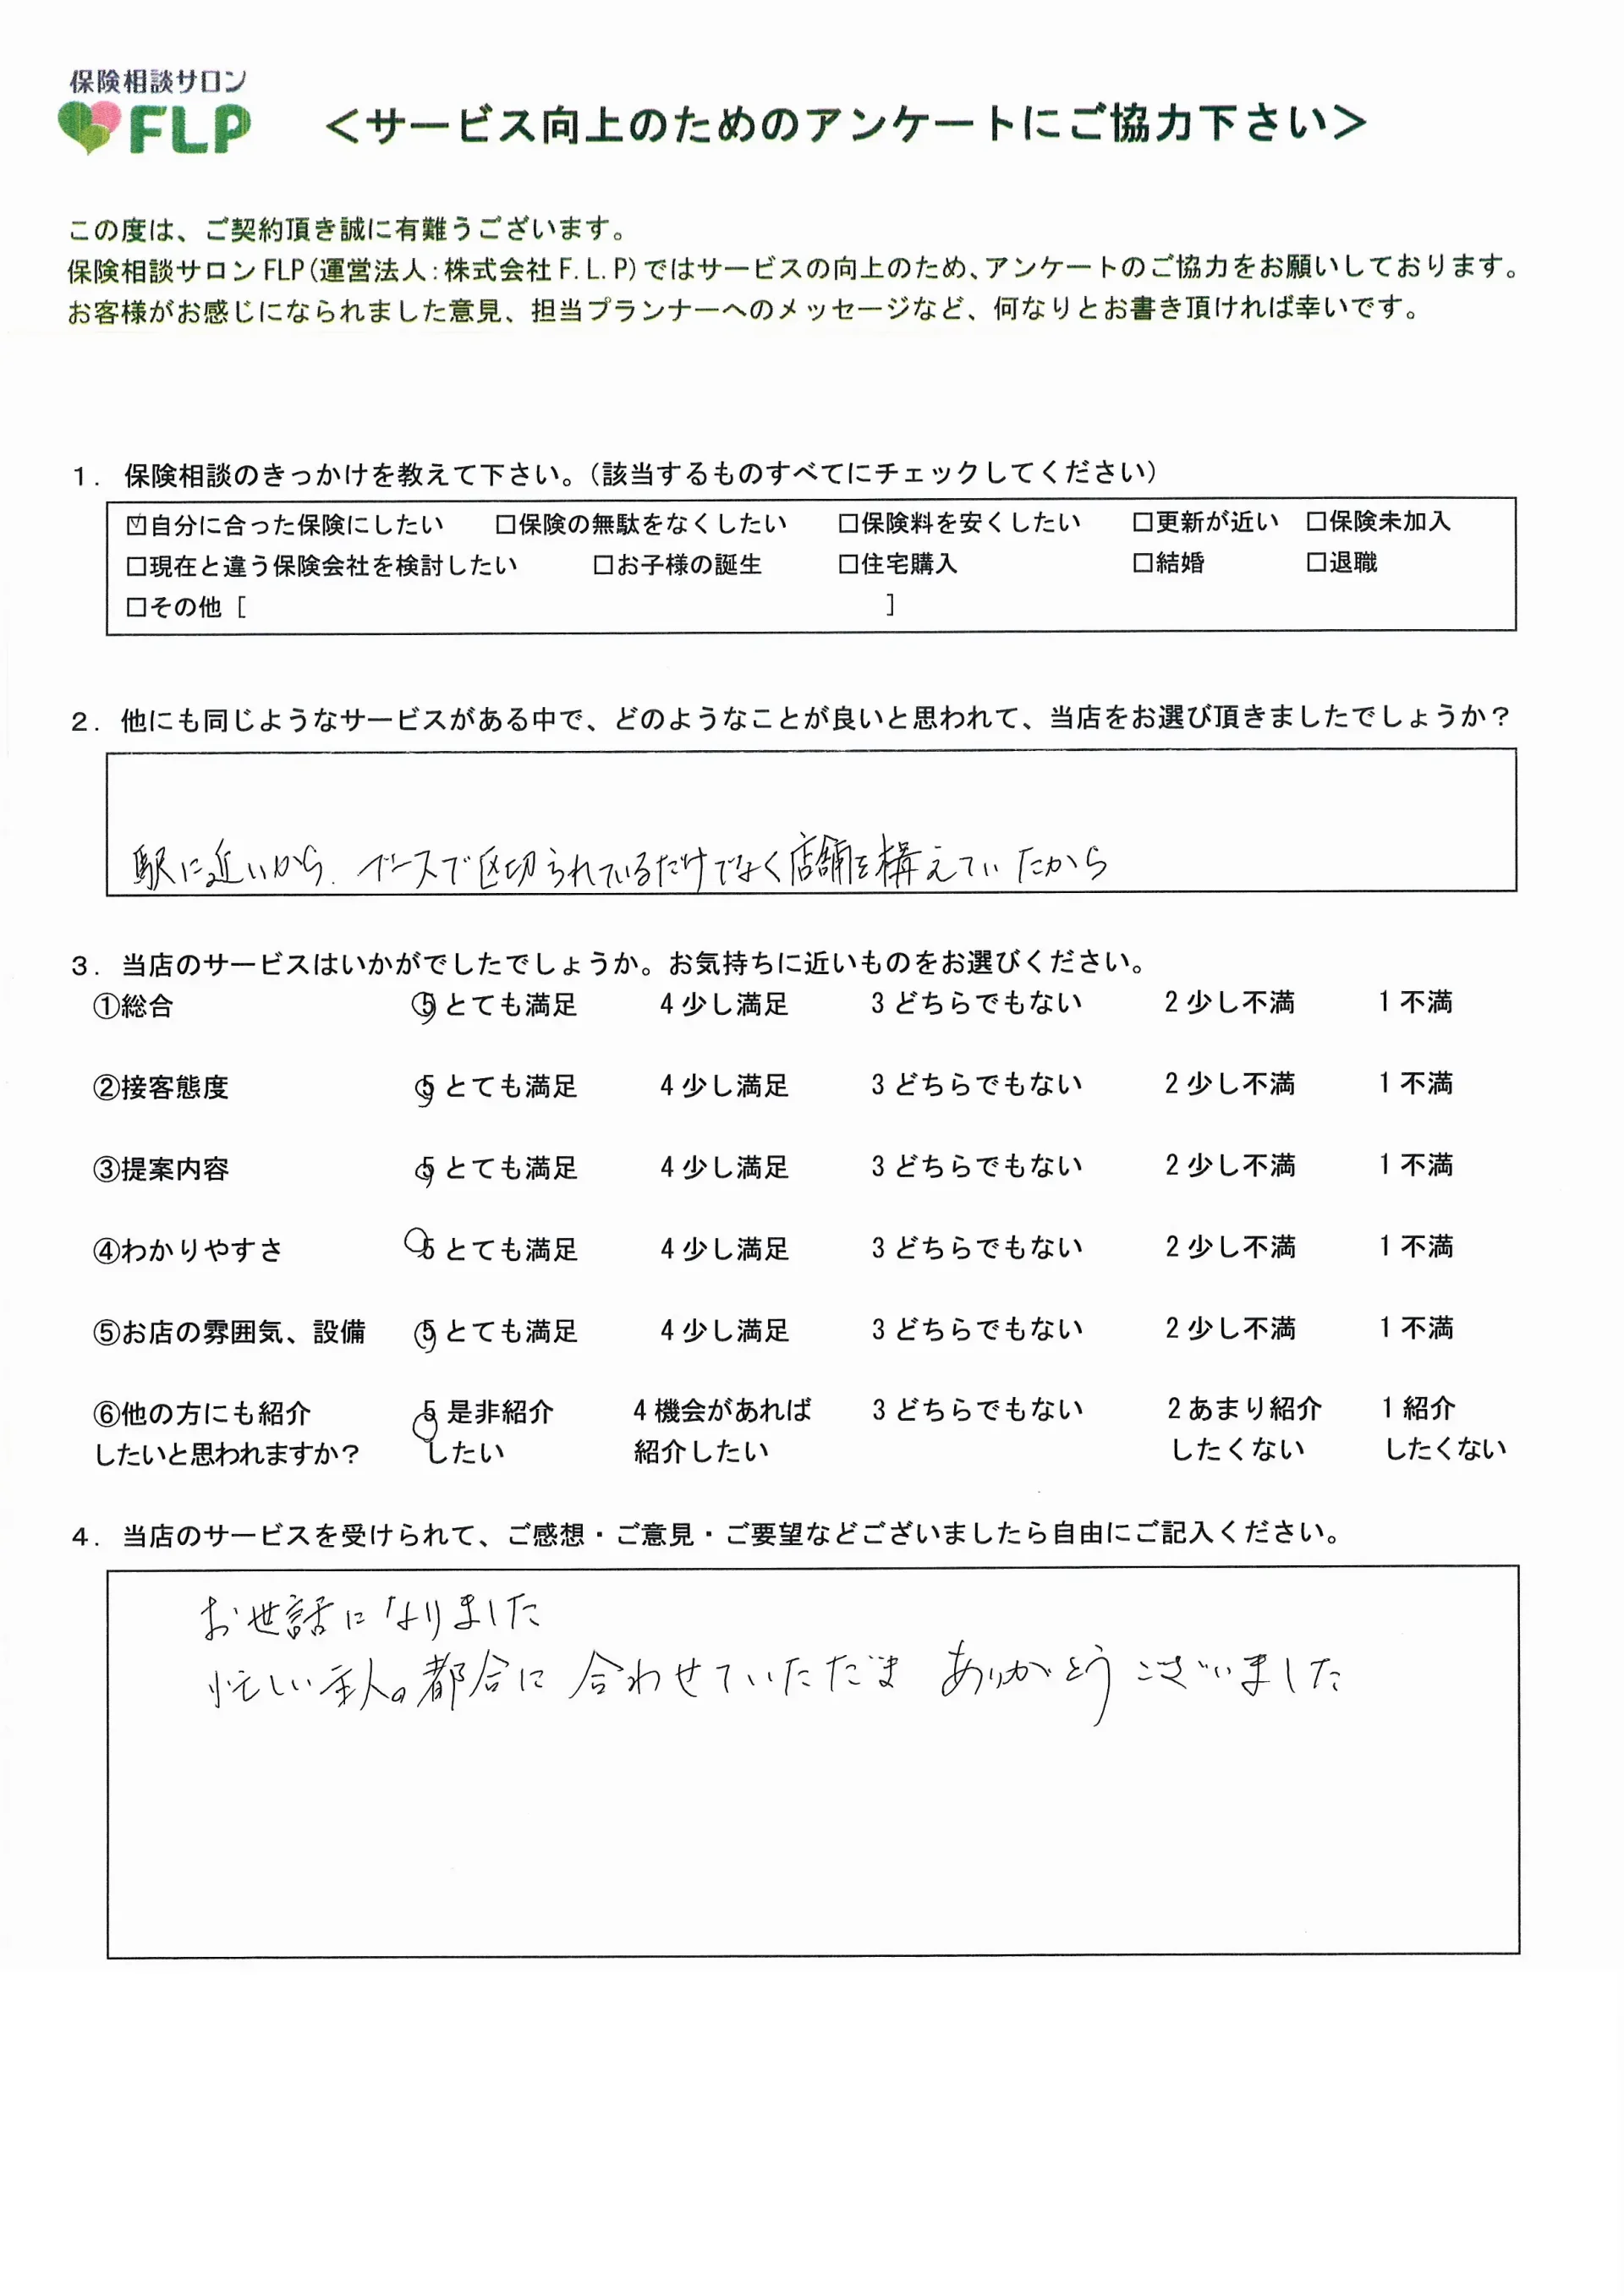 保険相談サロン
FLP
＜サービス向上のためのアンケートにご協力下さい＞
この度は、ご契約頂き誠に有難うございます。
保険相談サロンFLP(運営法人:株式会社F.L.P)ではサービスの向上のため、アンケートのご協力をお願いしております。
お客様がお感じになられました意見、担当プランナーへのメッセージなど、何なりとお書き頂ければ幸いです。
1. 保険相談のきっかけを教えて下さい。(該当するものすべてにチェックしてください)
☑自分に合った保険にしたい □保険の無駄をなくしたい □保険料を安くしたい □更新が近い □保険未加入
□現在と違う保険会社を検討したい □お子様の誕生 □住宅購入 □結婚 □退職
□その他 [ ]
2. 他にも同じようなサービスがある中で、どのようなことが良いと思われて、当店をお選び頂きましたでしょうか?
駅に近いから. ブースで区切られているだけでなく店舗を構えていたから
3. 当店のサービスはいかがでしたでしょうか。お気持ちに近いものをお選びください。
①総合 5 とても満足 4 少し満足 3 どちらでもない 2 少し不満 1 不満
②接客態度 5 とても満足 4 少し満足 3 どちらでもない 2 少し不満 1 不満
③提案内容 5 とても満足 4 少し満足 3 どちらでもない 2 少し不満 1 不満
④わかりやすさ 5 とても満足 4 少し満足 3 どちらでもない 2 少し不満 1 不満
⑤お店の雰囲気、設備 5 とても満足 4 少し満足 3 どちらでもない 2 少し不満 1 不満
⑥他の方にも紹介 5 是非紹介 4 機会があれば 3 どちらでもない 2 あまり紹介 1 紹介
したいと思われますか? したい 紹介したい したくない したくない
4. 当店のサービスを受けられて、ご感想・ご意見・ご要望などございましたら自由にご記入ください。
お世話になりました
忙しい主人の都合に 合わせていただき ありがとう ございました